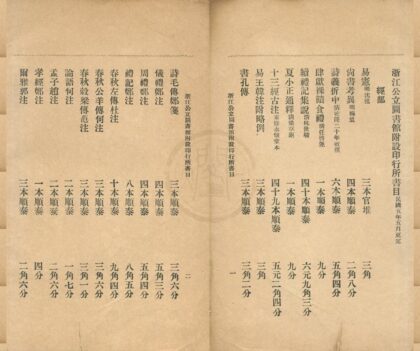 浙江公立圖書館附設印行所書目 民國五年五月重定
經部
易憲 三本官堆 三角
尚書考異 四本順泰 二角八分
詩義折中 六本順泰 五角
肆獻祼饋食禮 一本順泰 九分
續禮記集說 四十本順泰 六元九角三分
夏小正通釋 一本順泰 九分
十三經古注 四十九本順泰 五元二角四分
易王韓注附略例 二本順泰 三角四分
書孔傳 三本順泰 三角二分
浙江公立圖書館附設印行所書目
一
浙江公立圖書館附設印行所書目
二
詩毛傳鄭箋 三本順泰 三角六分
儀禮鄭注 四本順泰 五角三分
周禮鄭注 四本順泰 五角四分
禮記鄭注 八本順泰 八角五分
春秋左傳杜注 十本順泰 九角四分
春秋公羊傳何注 三本順泰 三角六分
春秋穀梁傳范注 三本順泰 三角一分
論語何注 二本順泰 一角七分
孟子趙注 二本順泰 二角六分
孝經鄭注 一本順泰 四分
爾雅郭注 三本順泰 二角六分